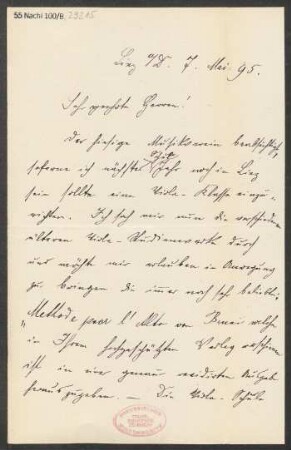 55 Nachl 100/B,
Linz a/D. 7. Mai 95.
Sehr geehrte Herren!
Der hiesige Musikverein beabsichtigt,
soferne ich nächstes Jahr noch in Linz
sein sollte eine Viola-Klasse einzu-
richten. Ich sah mir nun die verschiedenen
älteren Viola-Studienwerke durch
und möchte mir erlauben in Anregung
zu bringen die immer noch sehr beliebte
"Methode pour l'Alto von Bruni welche
in Ihrem hochgeschätzten Verlag erschienen
ist in einer genau revidirten Ausgabe
herauszugeben. — Die Viola-Schule